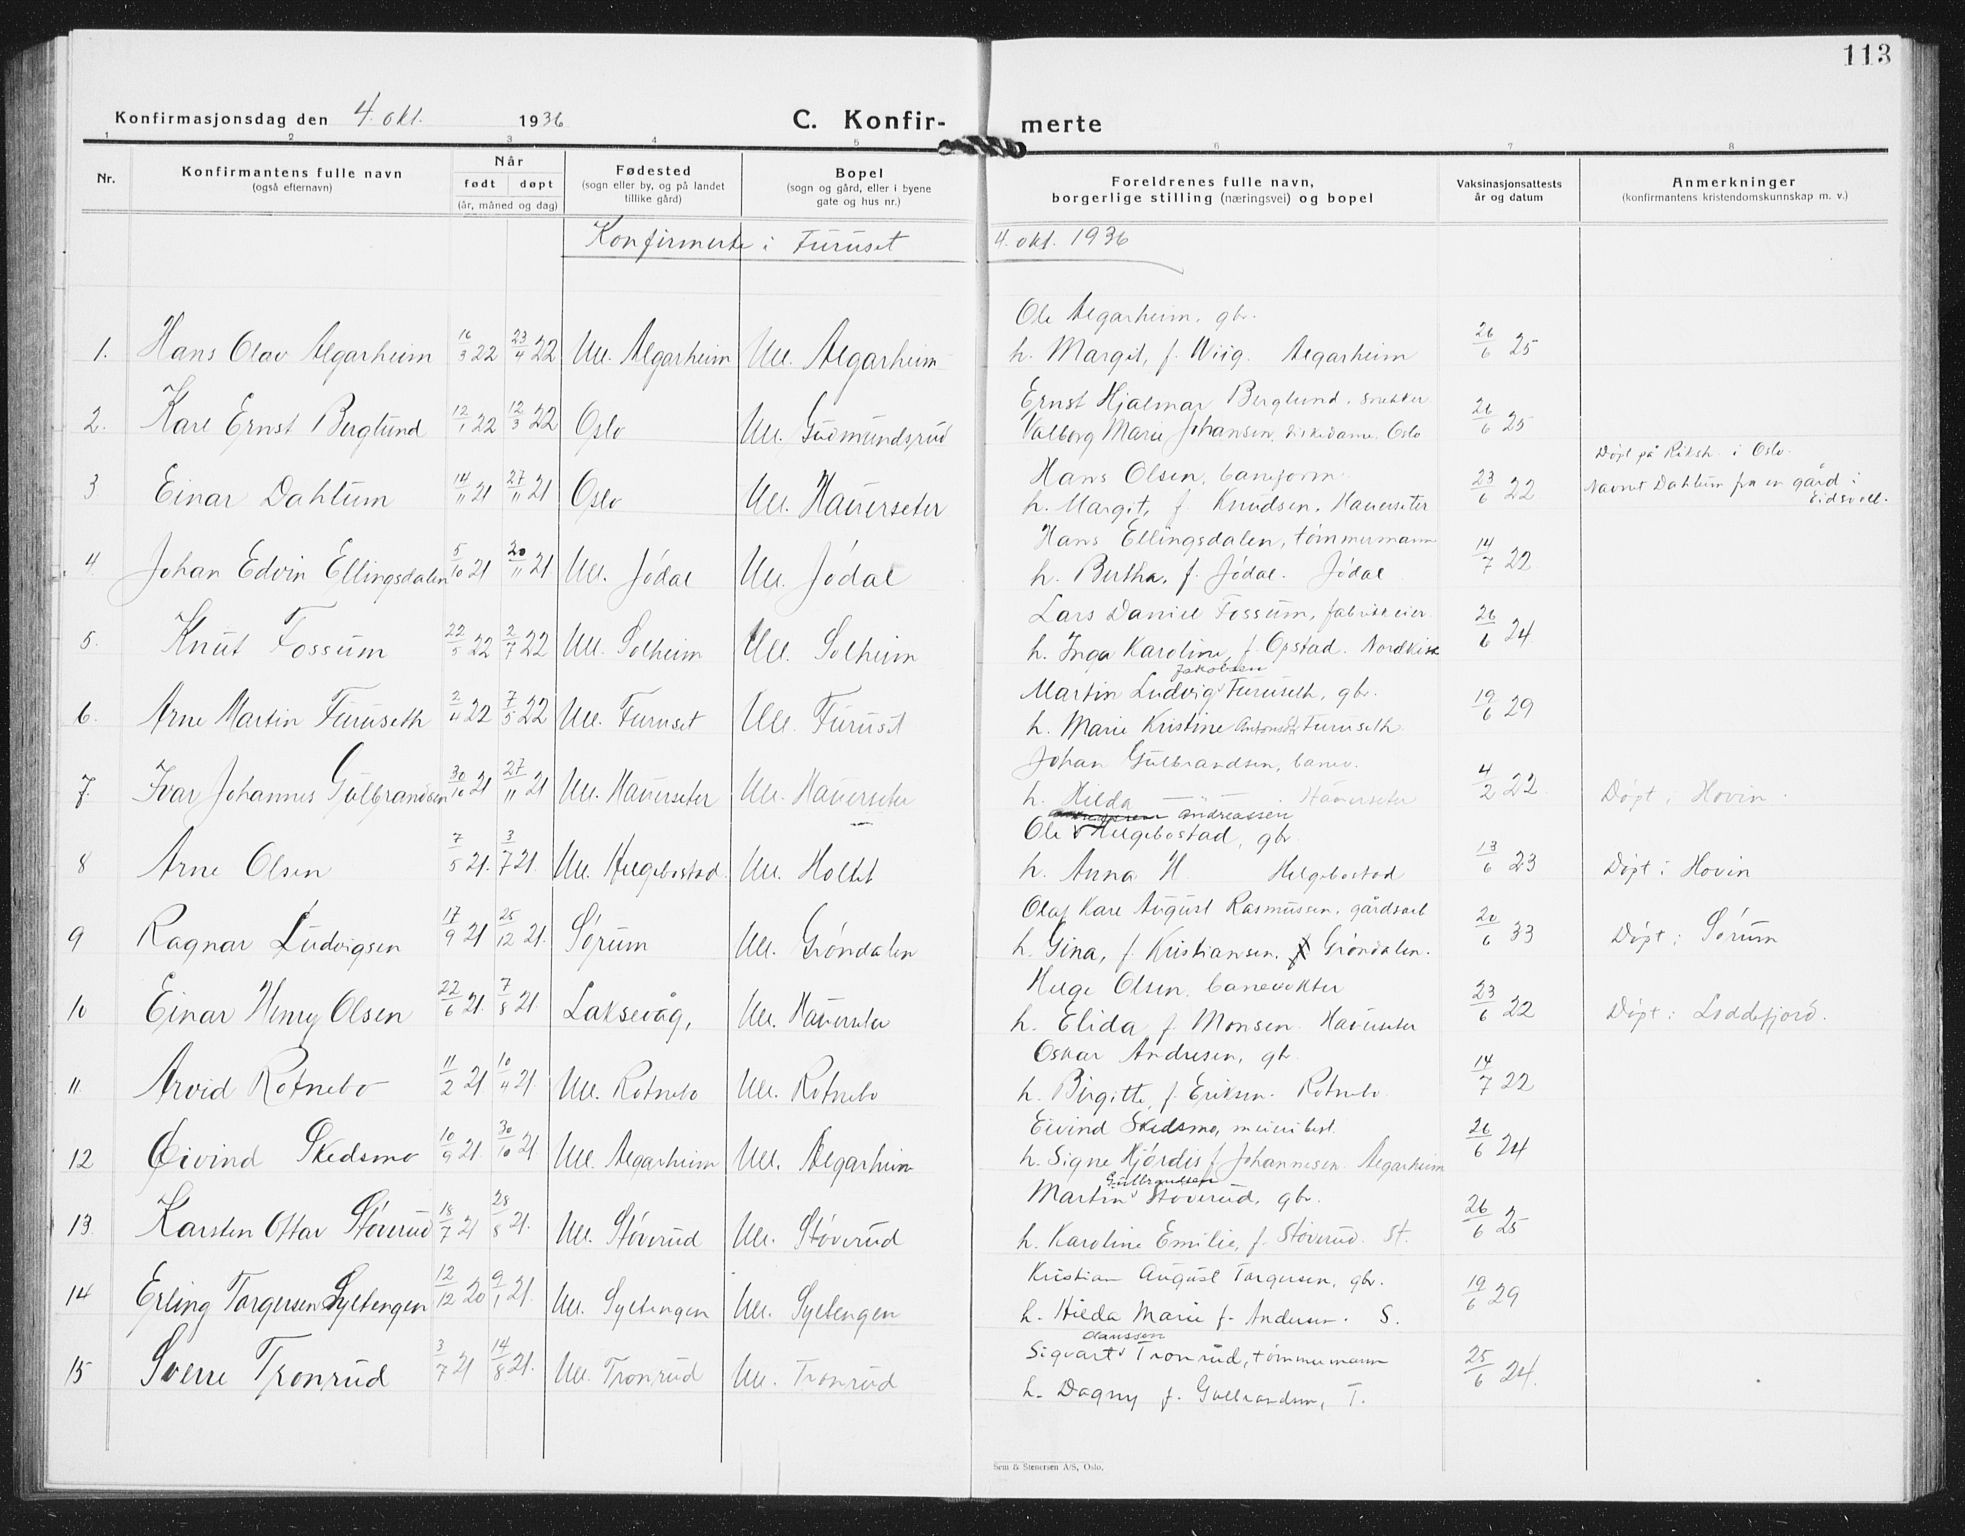 113
Konfirmasjonsdag den 4. okt. 1936 C. Konfir- merte
1 2 3 4 5 6 7 8
Nr. Konfirmantens fulle navn (også efternavn) Når født døpt (år, måned og dag) Fødested (sogn eller by, og på landet tillike gård) Bopel (sogn og gård, eller i byene gate og hus nr.) Foreldrenes fulle navn, borgerlige stilling (næringsvei) og bopel Vaksinasjonsattests år og datum Anmerkninger (konfirmantens kristendomskunnskap m. v.)
Konfirmerte i Furuset 4. okt. 1936
Ole Algarheim, gbr.
1. Hans Olav Algarheim 16/3 22 23/4 22 Ull. Algarheim Ull. Algarheim h. Margit, f. Wiig. Algarheim 26/6 25
Ernst Hjalmar Berglund, snekker
2. Kare Ernst Berglund 12/1 22 12/3 22 Oslo Ull. Gudmundsrud Valborg Marie Johansen, Oslo 26/6 25
Døpt på Riksh. i Oslo.
Hans Olsen, baneform.
3. Einar Dahlum 14/11 21 27/11 21 Oslo Ull. Hauerseter h. Margit, f. Knudsen, Hauerseter 23/6 22 Navnet Dahlum fra en gård i Eidsvoll.
Hans Ellingsdalen, tømmermann
4. Johan Edvin Ellingsdalen 5/10 21 20/11 21 Ull. Jødal Ull. Jødal h. Bertha, f. Jødal. Jødal 14/7 22
Lars Daniel Fossum, fabrikkeier
5. Knut Fossum 22/5 22 2/7 22 Ull. Solheim Ull. Solheim h. Inga Karoline, f. Opstad. Nordkisa 26/6 24
Jakobsen
Martin Ludvig Furuseth, gbr.
6. Arne Martin Furuseth 2/4 22 7/5 22 Ull. Furuset Ull. Furuset h. Marie Kristine Antonsdtr Furuseth 19/6 29
Johan Gulbrandsen, banev.
7. Ivar Johannes Gulbrandsen 30/10 21 27/11 21 Ull. Hauerseter Ull. Hauerseter h. Hilda — " — . Hauerseter 4/2 22 Døpt i Hovin.
Andreassen
Ole Helgebostad, gbr.
8 Arne Olsen 7/5 21. 3/7 21. Ull. Helgebostad. Ull. Holtet h. Anna H. Helgebostad 13/6 23 Døpt i Hovin
Olaf Kare August Rasmussen, gårdsarb
9 Ragnar Ludvigsen 17/9 21 25/12 21. Sørum Ull. Grøndalen h. Gina, f. Kristiansen. Grøndalen. 20/6 33 Døpt i Sørum
Helge Olsen, banevokter
10 Einar Henry Olsen 22/6 21. 7/8 21. Laksevåg, Ull. Hauerseter h. Elida f. Monsen. Hauerseter 23/6 22 Døpt i Loddefjord.
Oskar Andresen, gbr.
11. Arvid Rotnebo 11/2 21 10/4 21. Ull. Rotnebo Ull. Rotnebo h. Birgitte, f. Eriksen. Rotnebo. 14/7 22
Eivind Skedsmo, meieribest.
12 Øivind Skedsmo 10/9 21. 30/10 21 Ull. Algarheim Ull. Algarheim h. Signe Hjørdis f. Johannesen. Algarheim 26/6 24
Gulbrandsen
Martin Støverud, gbr.
13. Karsten Ottar Støverud 18/7 21 28/8 21. Ull. Støverud Ull. Støverud h. Karoline Emilie, f. Støverud. St. 26/6 25
Kristian August Torgersen, gbr.
14 Erling Torgersen Syltengen 12/12 20 9/1 21. Ull. Syltengen Ull. Syltengen h. Hilda Marie f. Andersen. S. 19/6 29
Sigvart Tronrud, tømmermann
15 Sverre Tronrud 3/7 21 14/8 21. Ull. Tronrud Ull. Tronrud h. Dagny f. Gulbrandsen, T. 25/6 24.
Sem & Stenersen A/S, Oslo.